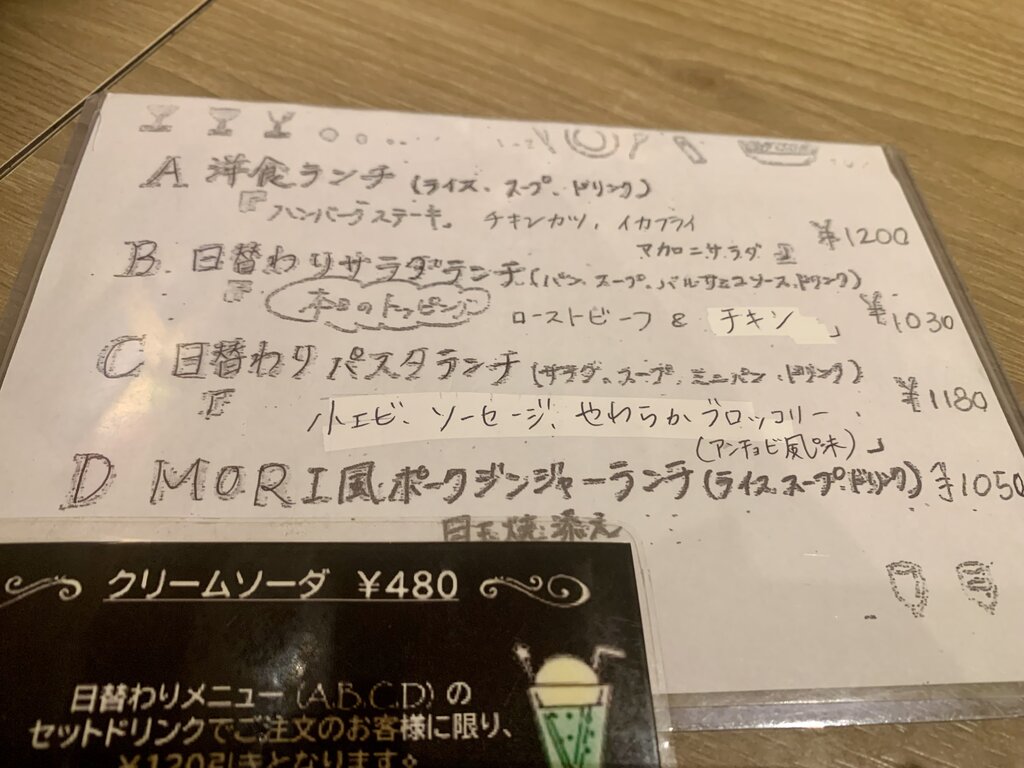 A 洋食ランチ (ライス、スープ、ドリンク)
『ハンバーグステーキ。チキンカツ, イカフライ
マカロニサラダ』 ¥1200
B 日替わりサラダランチ (パン、スープ、バルサミコソース、ドリンク)
『本日のトッピング ローストビーフ & チキン 」 ¥1030
C 日替わりパスタランチ (サラダ、スープ、ミニパン、ドリンク)
『小エビ、ソーセージ、やわらかブロッコリー ¥1180
(アンチョビ風味) 」
D MORI風ポークジンジャーランチ (ライス、スープ、ドリンク) ¥1050
目玉焼添え
クリームソーダ ¥480
日替わりメニュー (A.B.C.D) の
セットドリンクでご注文のお客様に限り、
¥120引きとなります。